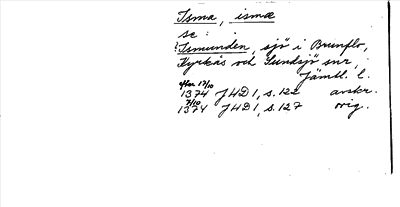 Isma, ismæ
se:
?Ismunden, sjö i Brunflo,
Kyrkås och Sundsjö snr,
Jämtl. l.
efter 17/10
1374 JHD 1, s. 122 avskr.
7/10
1374 JHD 1, s. 127 orig.